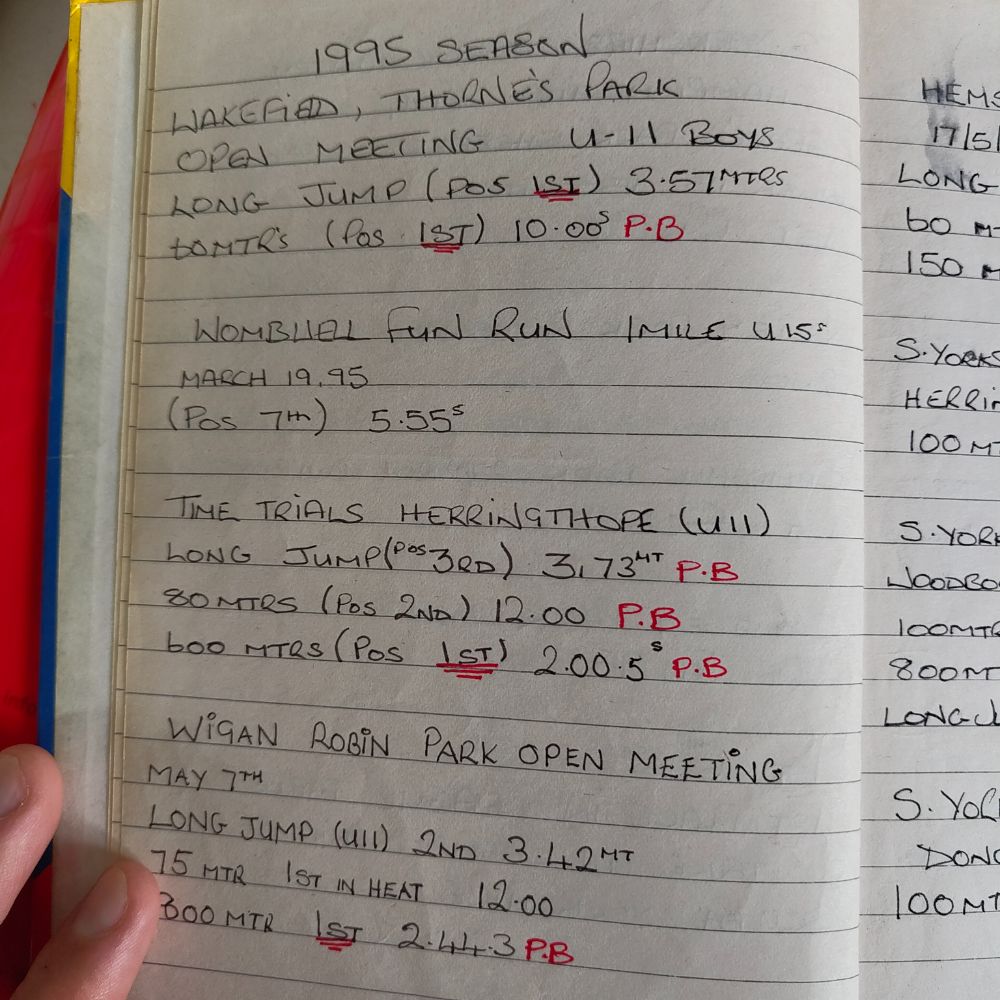 1995 SEASON
WAKEFIELD, THORNE'S PARK
OPEN MEETING U-11 BOYS
LONG JUMP (POS 1ST) 3.57 MTRS
60MTR'S (POS 1ST) 10.00s P.B
WOMBWELL FUN RUN 1 MILE U15s
MARCH 19.95
(POS 7th) 5.55s
TIME TRIALS HERRINGTHOPE (U11)
LONG JUMP (POS 3RD) 3.73MT P.B
80 MTRS (POS 2ND) 12.00 P.B
600 MTRS (POS 1ST) 2.00.5s P.B
WIGAN ROBIN PARK OPEN MEETING
MAY 7TH
LONG JUMP (U11) 2ND 3.42MT
75 MTR 1ST IN HEAT 12.00
800 MTR 1ST 2.44.3 P.B
HEMS
17/5/
LONG
60 M
150 M
S.YORKS
HERRIN
100 MT
S.YORK
WOODBO
100MTR
800MT
LONG JU
S.YOR
DONC
100MT